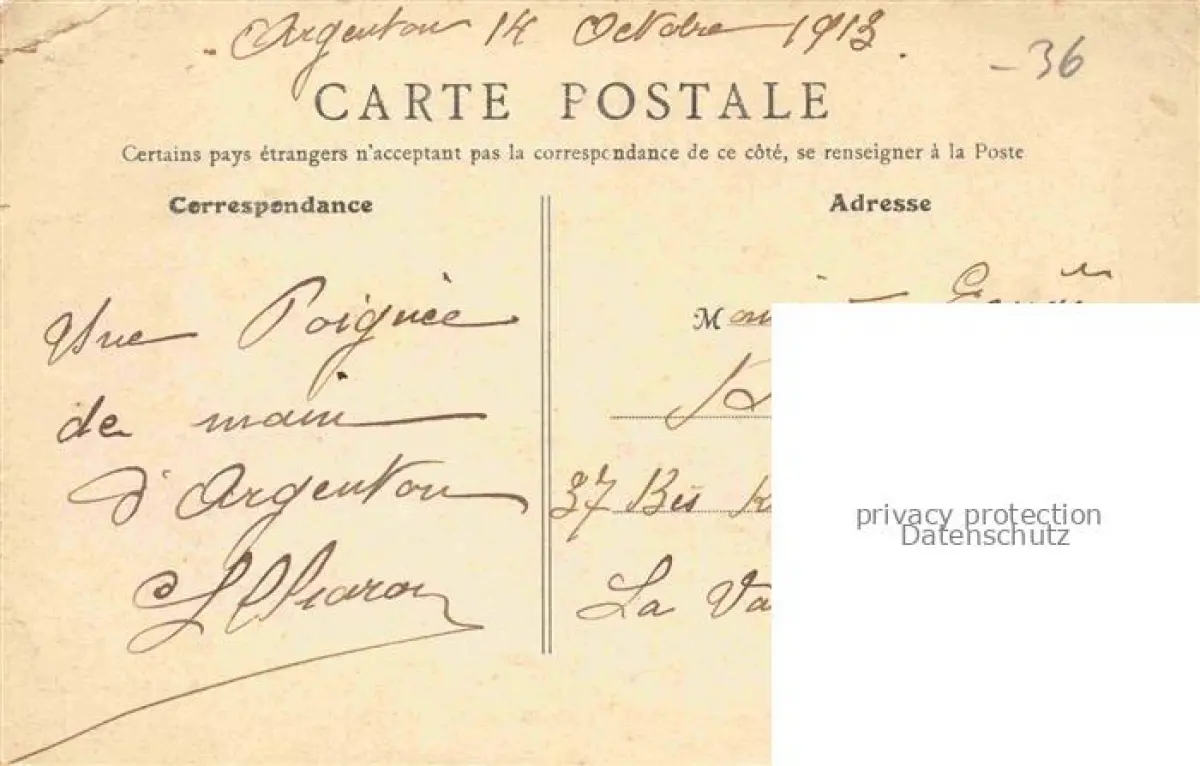 Argenton 14 Octobre 1913.
-36
CARTE POSTALE
Certains pays étrangers n'acceptant pas la correspondance de ce côté, se renseigner à la Poste
Correspondance
Adresse
Une Poignée
de main
d'Argenton
M
37 Bis
La Va
privacy protection
Datenschutz